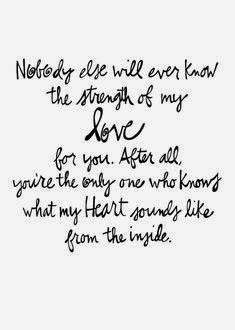 Nobody else will ever know
the strength of my
love
for you. After all,
you're the only one who knows
what my Heart sounds like
from the inside.